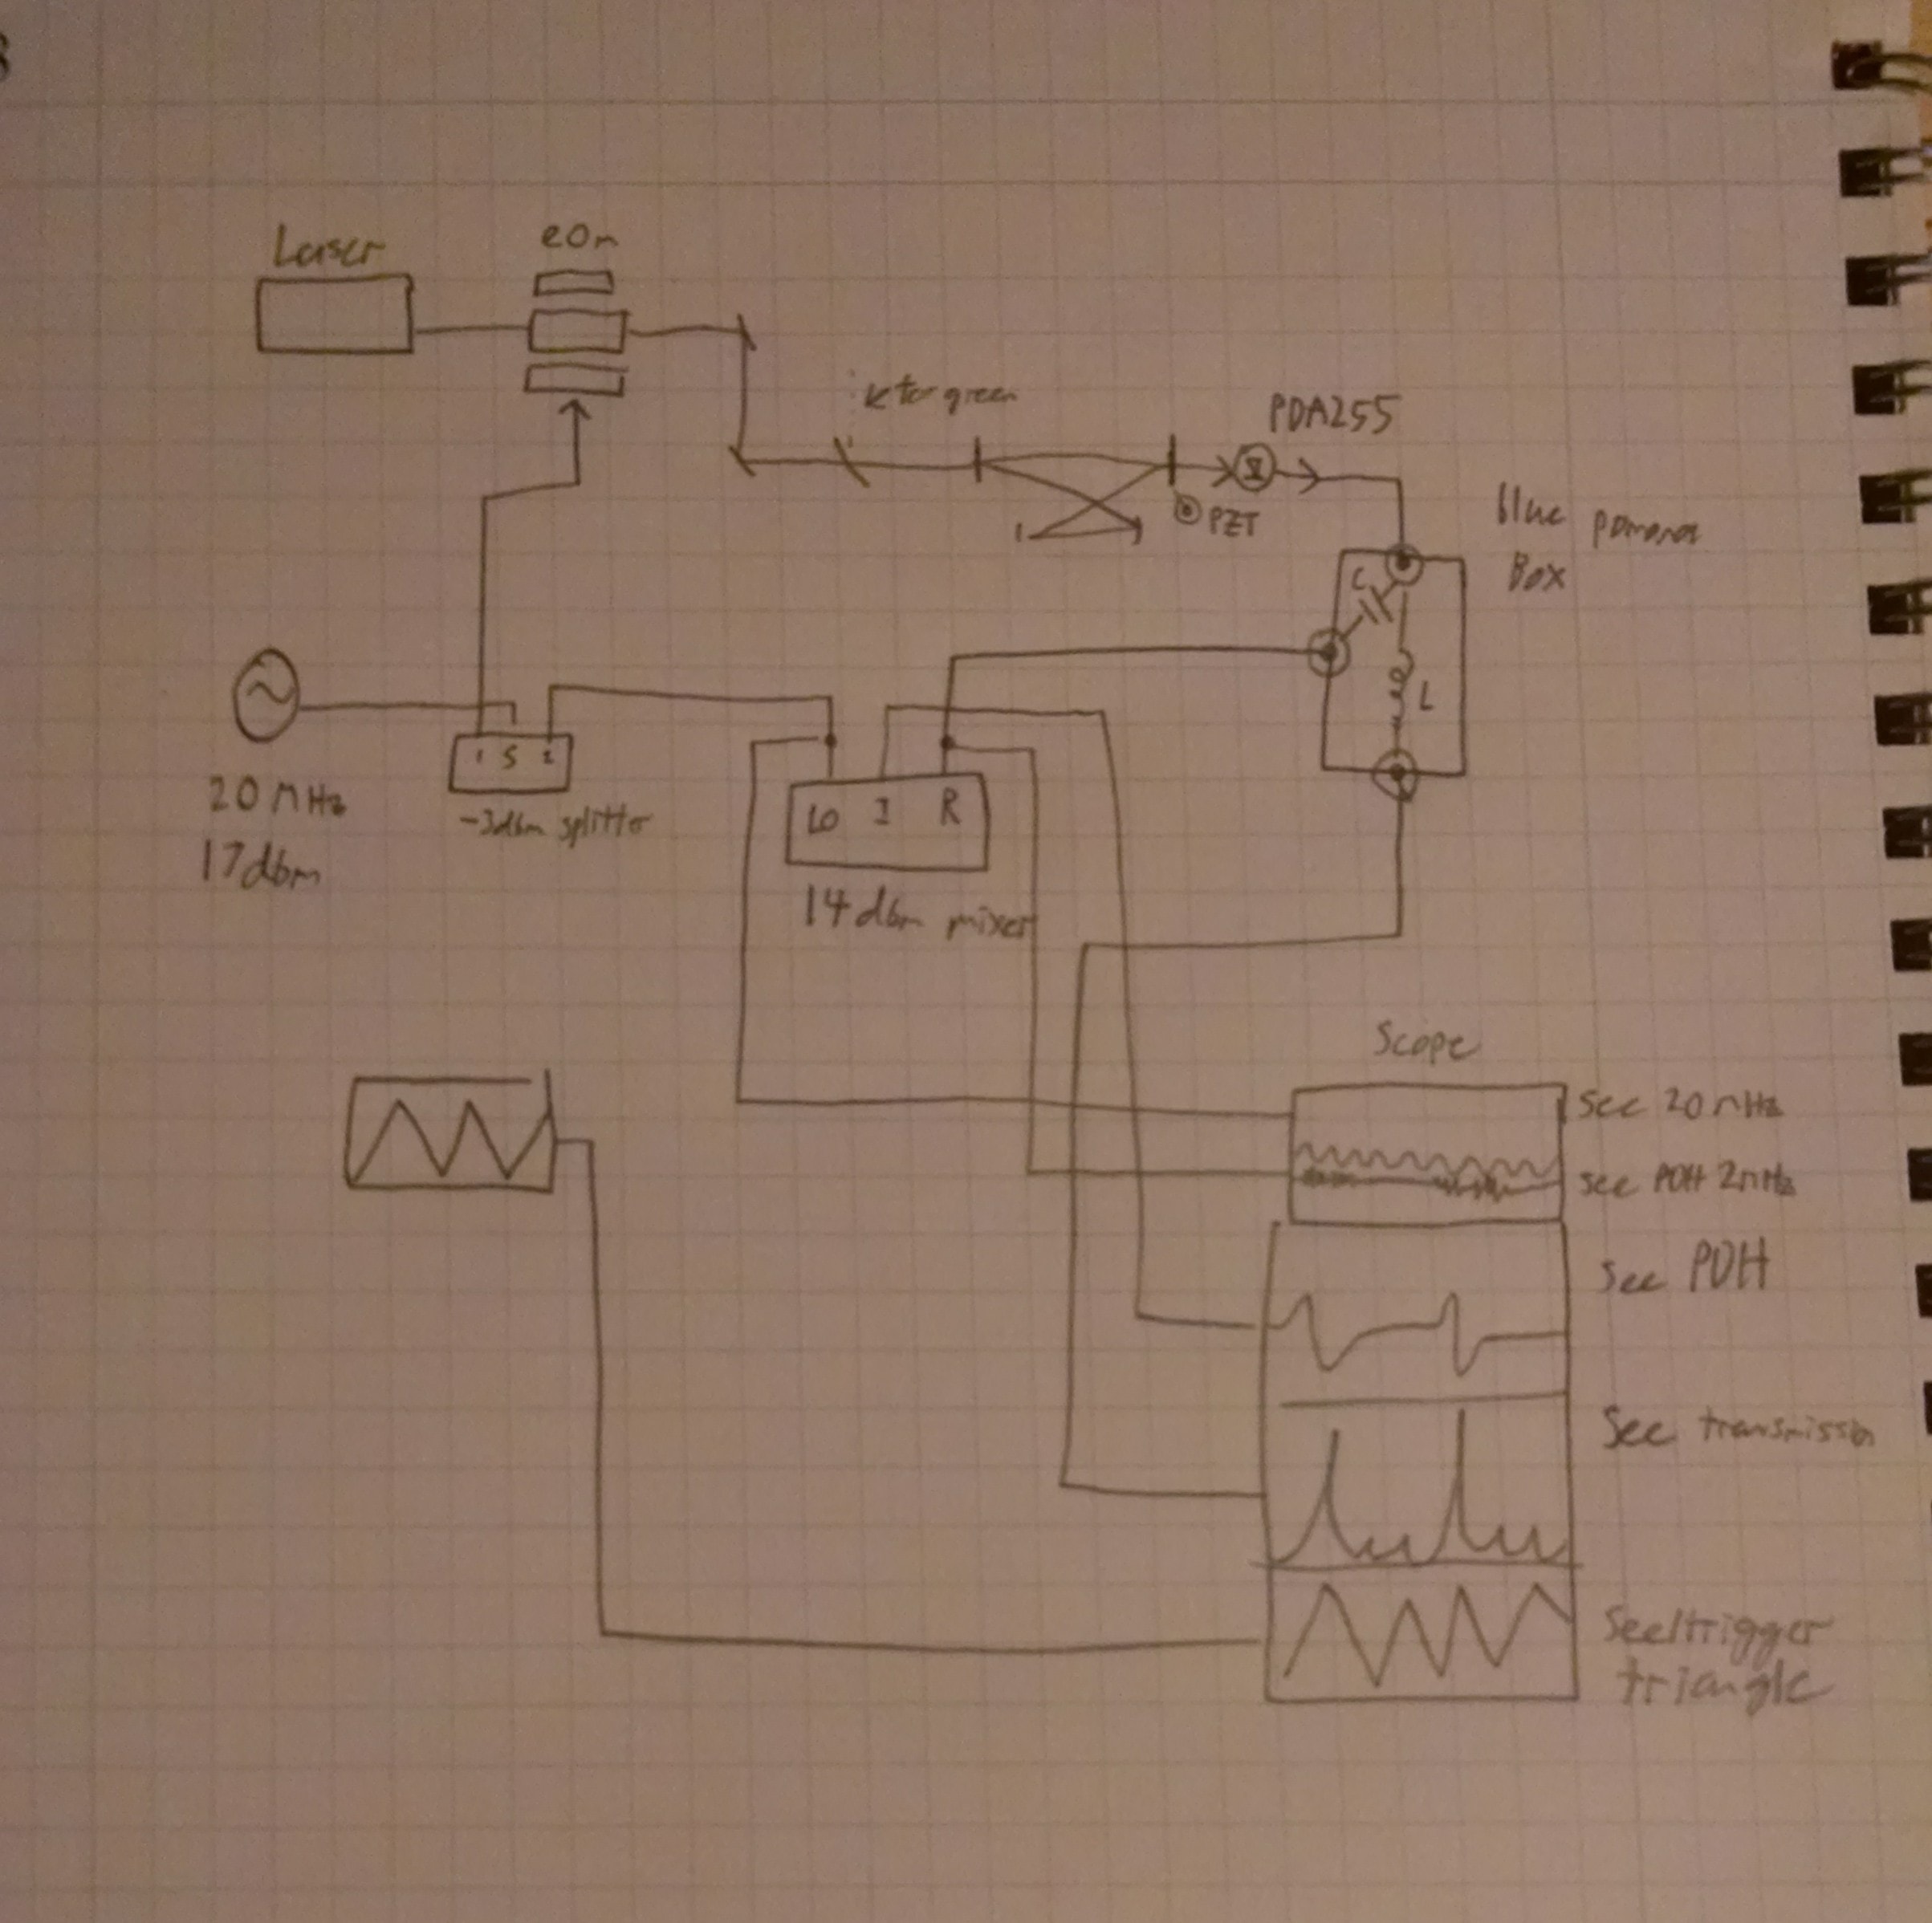 Laser
eOm
PDA255
PZT
blue pomona
Box
C
L
1 S 2
-3dbm splitter
20 MHz
17dbm
LO I R
14dbm mixer
Scope
see 20 MHz
see PDH 2MHz
See PDH
See transmission
See/trigger
triangle